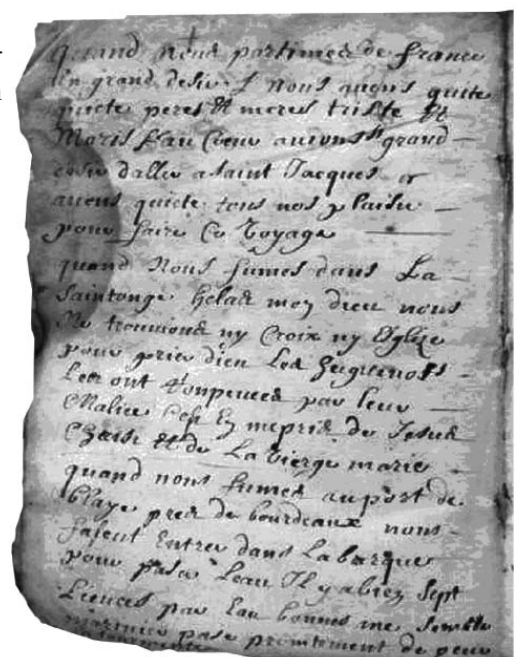 quand nous partimes de france
En grand desir nous auons quite
quicte peres et meres triste et
Maris Au Coeur auions sy grand
desir daller a saint Jacques
auons quicte tous nos plaisir
pour faire Ce Voyage
quand Nous fumes dans La
Saintonge helas mon dieu nous
Ne trouuions ny Croix ny Eglize
pour prier dieu Les huguenots
Les ont rompues par leur
Malice Cest En mepris de Jesus
Christ et de La Vierge marie
quand nous fumes au port de
blaye pres de bourdeaux nous
Entre dans La barque
pour passer Leau Il y a bien sept
Lieues par Eau bonnes me semble
marinier passe promtement de peur